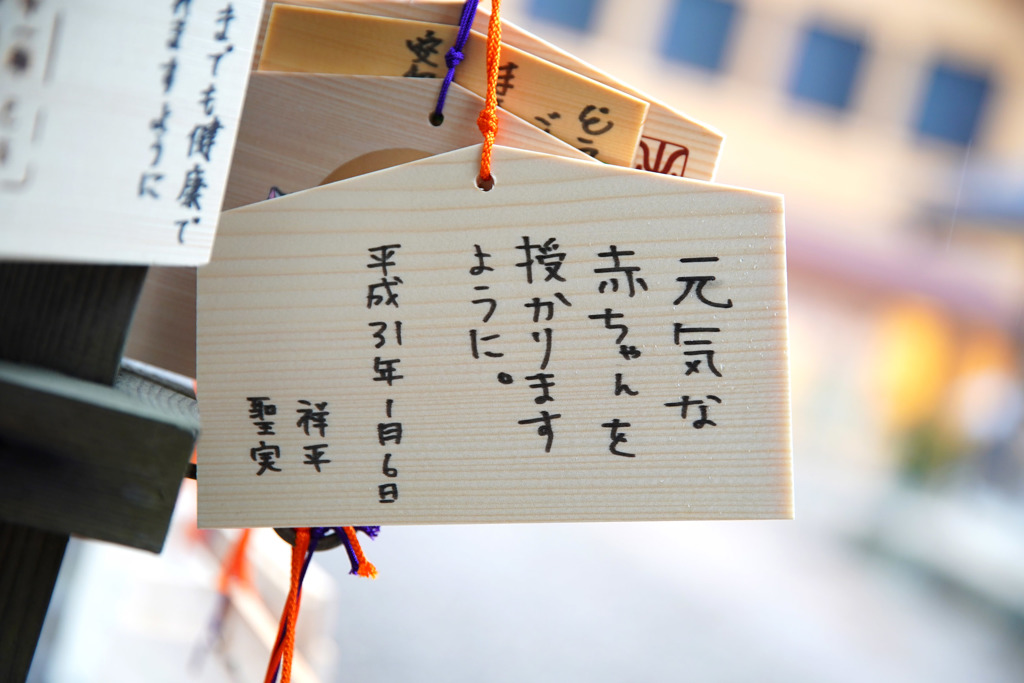 元気な
赤ちゃんを
授かります
ように。
平成31年1月6日
祥平
聖実
までも健康で
ますように